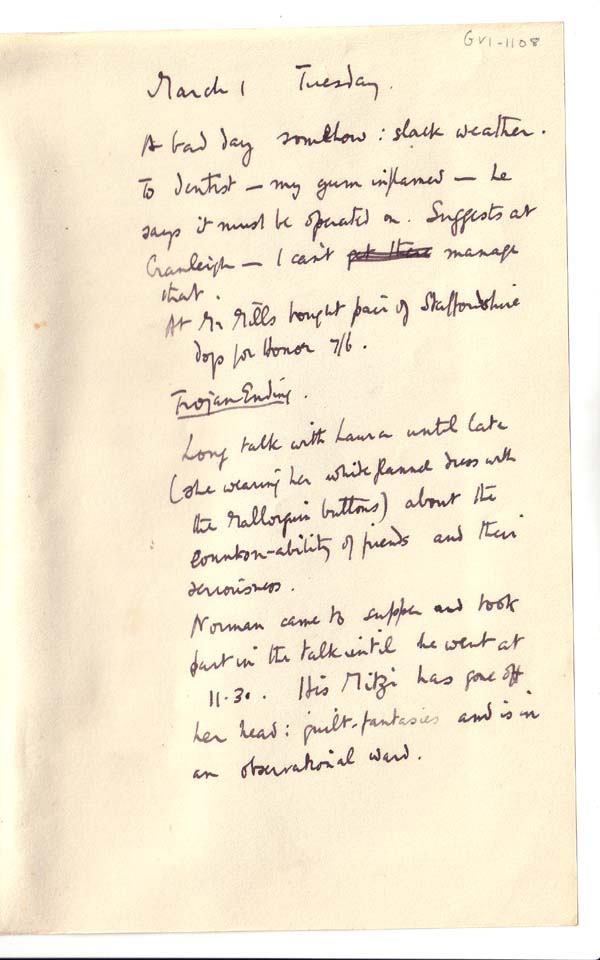 GV1-1108
March 1 Tuesday.
A bad day somehow: slack weather.
To dentist — my gum inflamed — he
says it must be operated on. Suggests at
Cranleigh — I can't get there manage
that.
At Mr Mills bought pair of Staffordshire
dogs for Honor 7/6.
Trojan Ending.
Long talk with Laura until late
(she wearing her white flannel dress with
the Mallorquin buttons) about the
count-on-ability of friends and their
seriousness.
Norman came to supper and took
part in the talk until he went at
11.30. His Mitzi has gone off
her head: guilt-fantasies and is in
an observational ward.